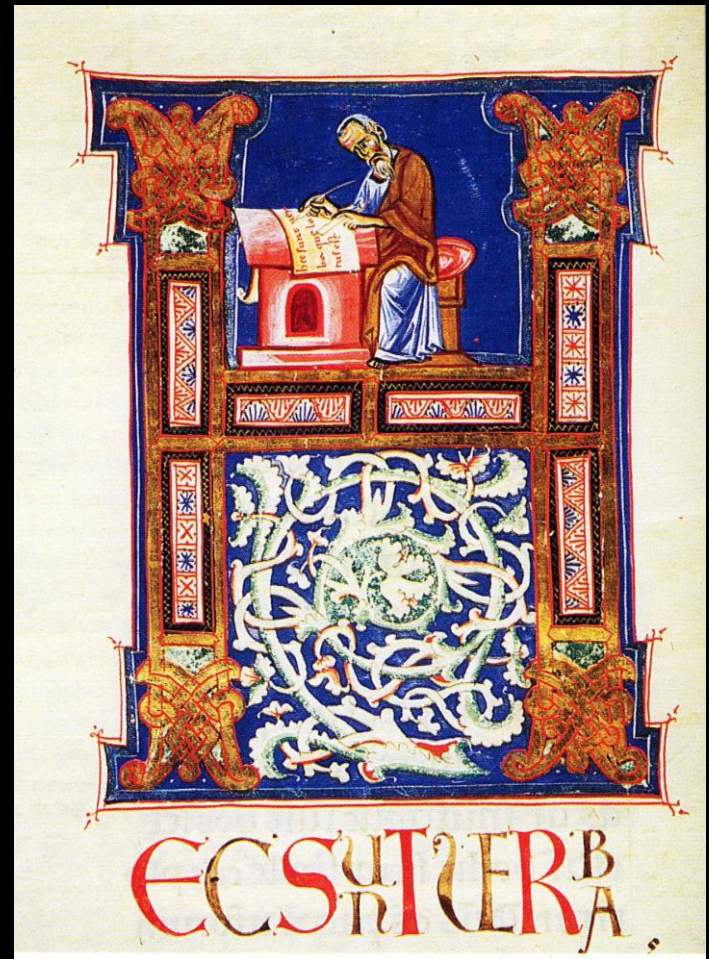 hec sunt uer
ba que lo
cut est
HEC SUNT UERBA